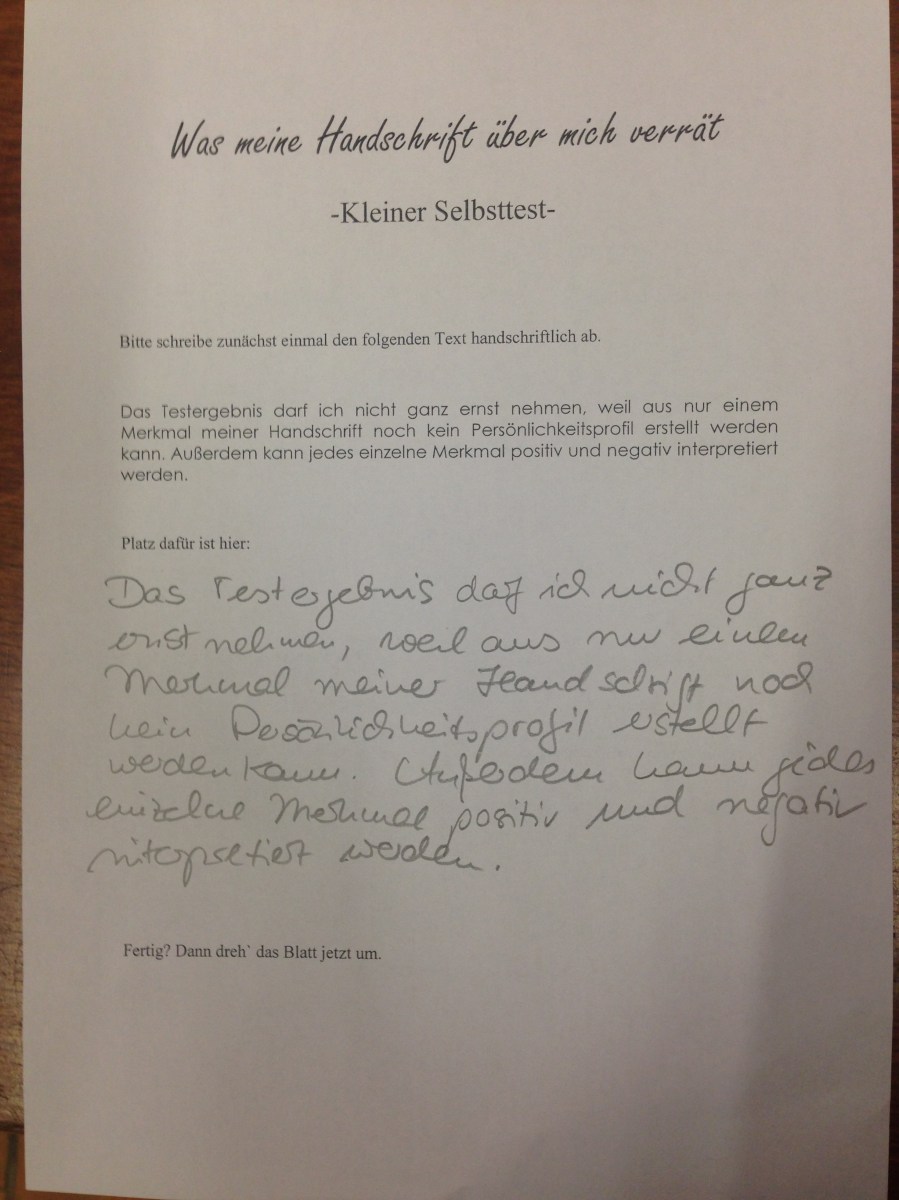 Was meine Handschrift über mich verrät
-Kleiner Selbsttest-
Bitte schreibe zunächst einmal den folgenden Text handschriftlich ab.
Das Testergebnis darf ich nicht ganz ernst nehmen, weil aus nur einem
Merkmal meiner Handschrift noch kein Persönlichkeitsprofil erstellt werden
kann. Außerdem kann jedes einzelne Merkmal positiv und negativ interpretiert
werden.
Platz dafür ist hier:
Das Testergebnis darf ich nicht ganz
ernst nehmen, weil aus nur einem
Merkmal meiner Handschrift noch
kein Persönlichkeitsprofil erstellt
werden kann. Außerdem kann jedes
einzelne Merkmal positiv und negativ
interpretiert werden.
Fertig? Dann dreh` das Blatt jetzt um.